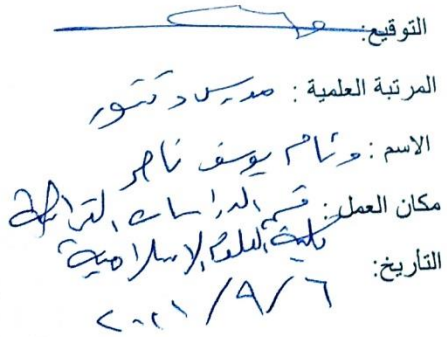 التوقيع:
المرتبة العلمية : مدرس دكتور
الاسم : وئام يوسف ناصر
مكان العمل: قسم الدراسات
كلية العلوم الاسلامية
التأريخ: ٢٠٢١/٩/٦